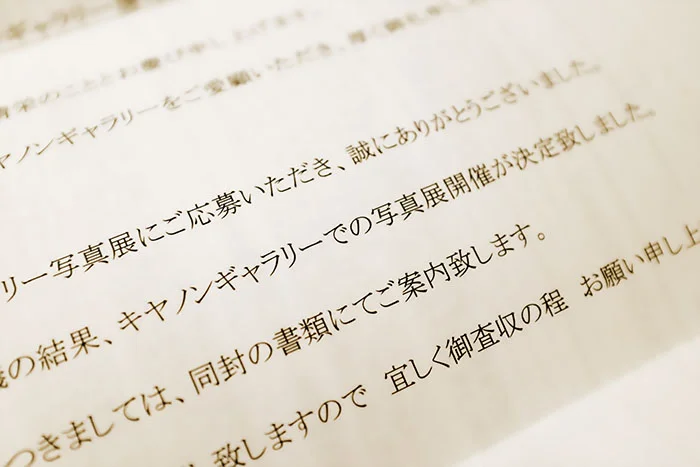 のこととお慶び申し上げます。
ヤノンギャラリーをご愛顧いただき、厚く御礼申し
リー写真展にご応募いただき、誠にありがとうございました。
の結果、キヤノンギャラリーでの写真展開催が決定致しました。
つきましては、同封の書類にてご案内致します。
致しますので 宜しく御査収の程 お願い申し上